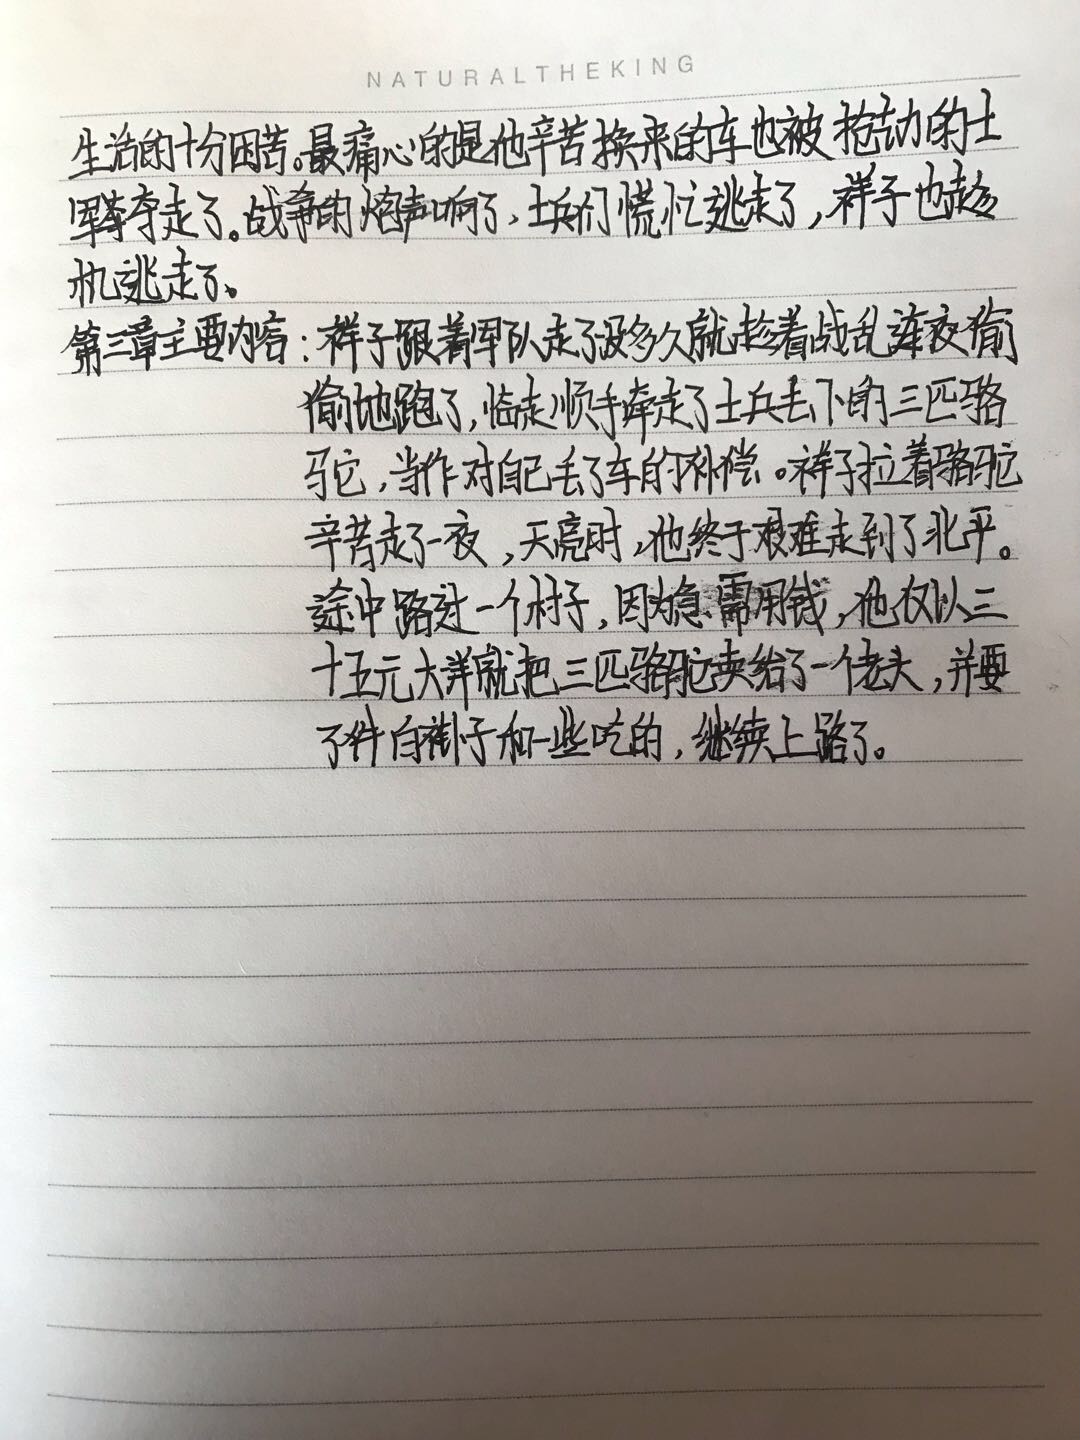 NATURALTHEKING
生活的十分困苦。最痛心的是他辛苦换来的车也被抢劫的士
军夺走了。战争的炮声响了，士兵们慌忙逃走了，祥子也趁
机逃走了。
第三章主要内容：祥子跟着军队走了没多久就趁着战乱连夜偷
偷地跑了，临走顺手牵走了士兵丢下的三匹骆
驼，当作对自己丢了车的补偿。祥子拉着骆驼
辛苦走了一夜，天亮时，他终于艰难走到了北平。
途中路过一个村子，因为急需用钱，他仅以三
十五元大洋就把三匹骆驼卖给了一个老头，并要
了件白褂子和一些吃的，继续上路了。